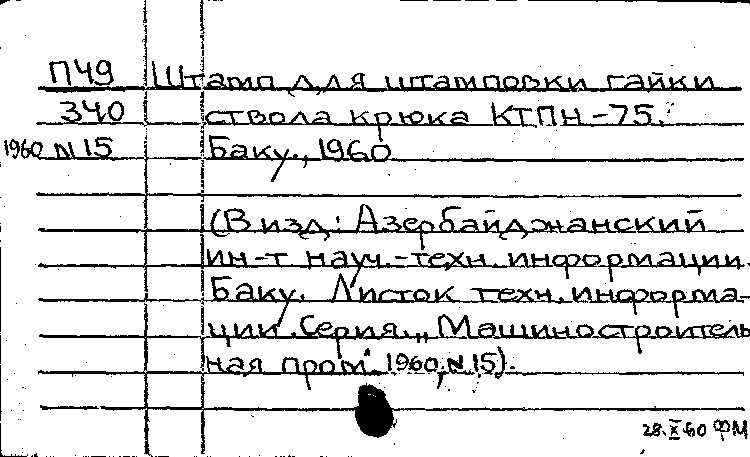 П49 Штамп для штамповки гайки
340 ствола крюка КТПН-75.
1960 N15 Баку., 1960
(В изд: Азербайджанский
ин-т науч.-техн. информации.
Баку. Листок техн. информа-
ции. Серия „Машинострои­тель
ная пром". 1960, N15).
28.X.60 ФМ